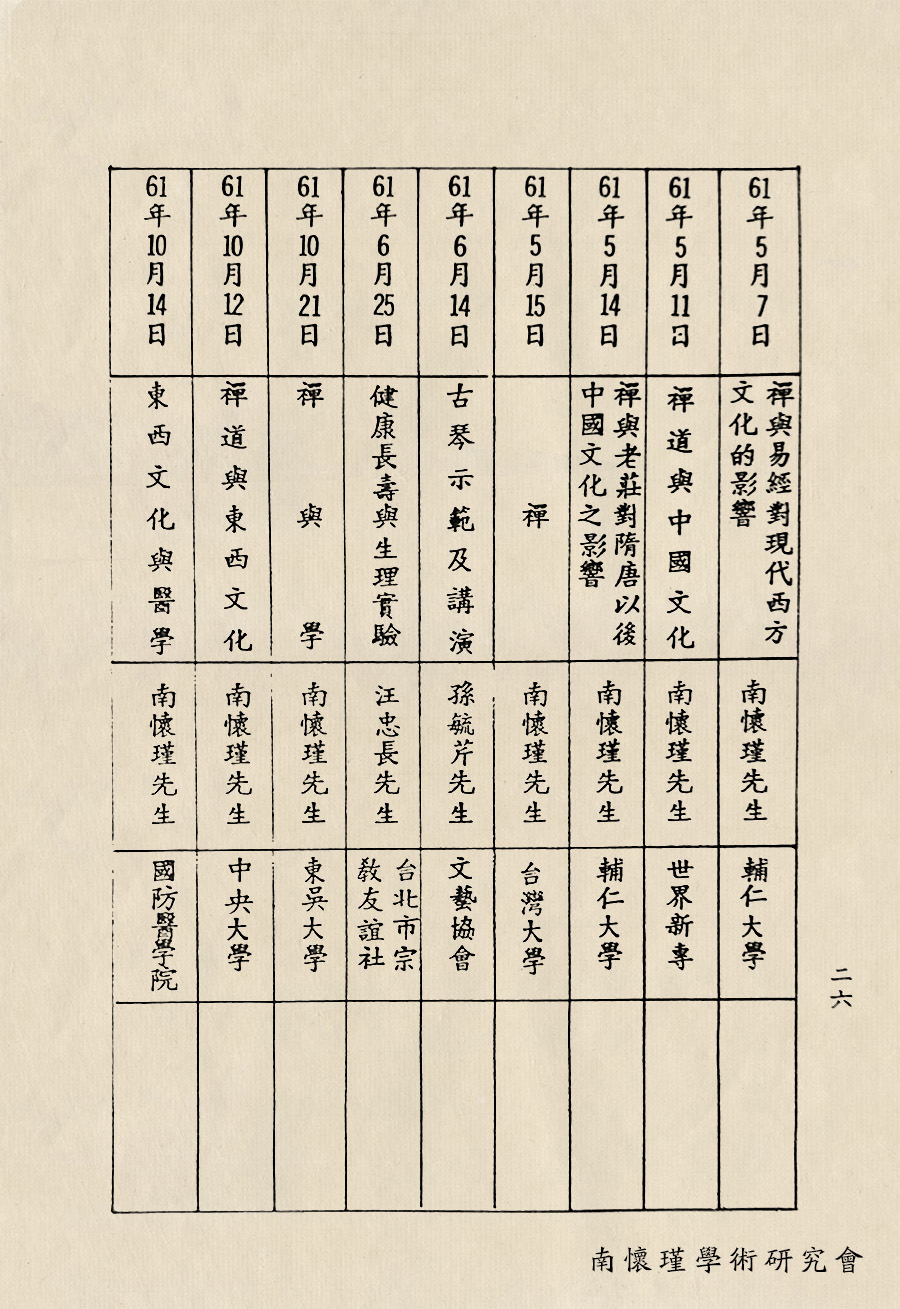 61年5月7日
禪與易經對現代西方
文化的影響
南懷瑾先生
輔仁大學
61年5月11日
禪道與中國文化
南懷瑾先生
世界新專
61年5月14日
禪與老莊對隋唐以後
中國文化之影響
南懷瑾先生
輔仁大學
61年5月15日
禪
南懷瑾先生
台灣大學
61年6月14日
古琴示範及講演
孫毓芹先生
文藝協會
61年6月25日
健康長壽與生理實驗
汪忠長先生
台北市宗
教友誼社
61年10月21日
禪與學
南懷瑾先生
東吳大學
61年10月12日
禪道與東西文化
南懷瑾先生
中央大學
61年10月14日
東西文化與醫學
南懷瑾先生
國防醫學院
二六
南懷瑾學術研究會